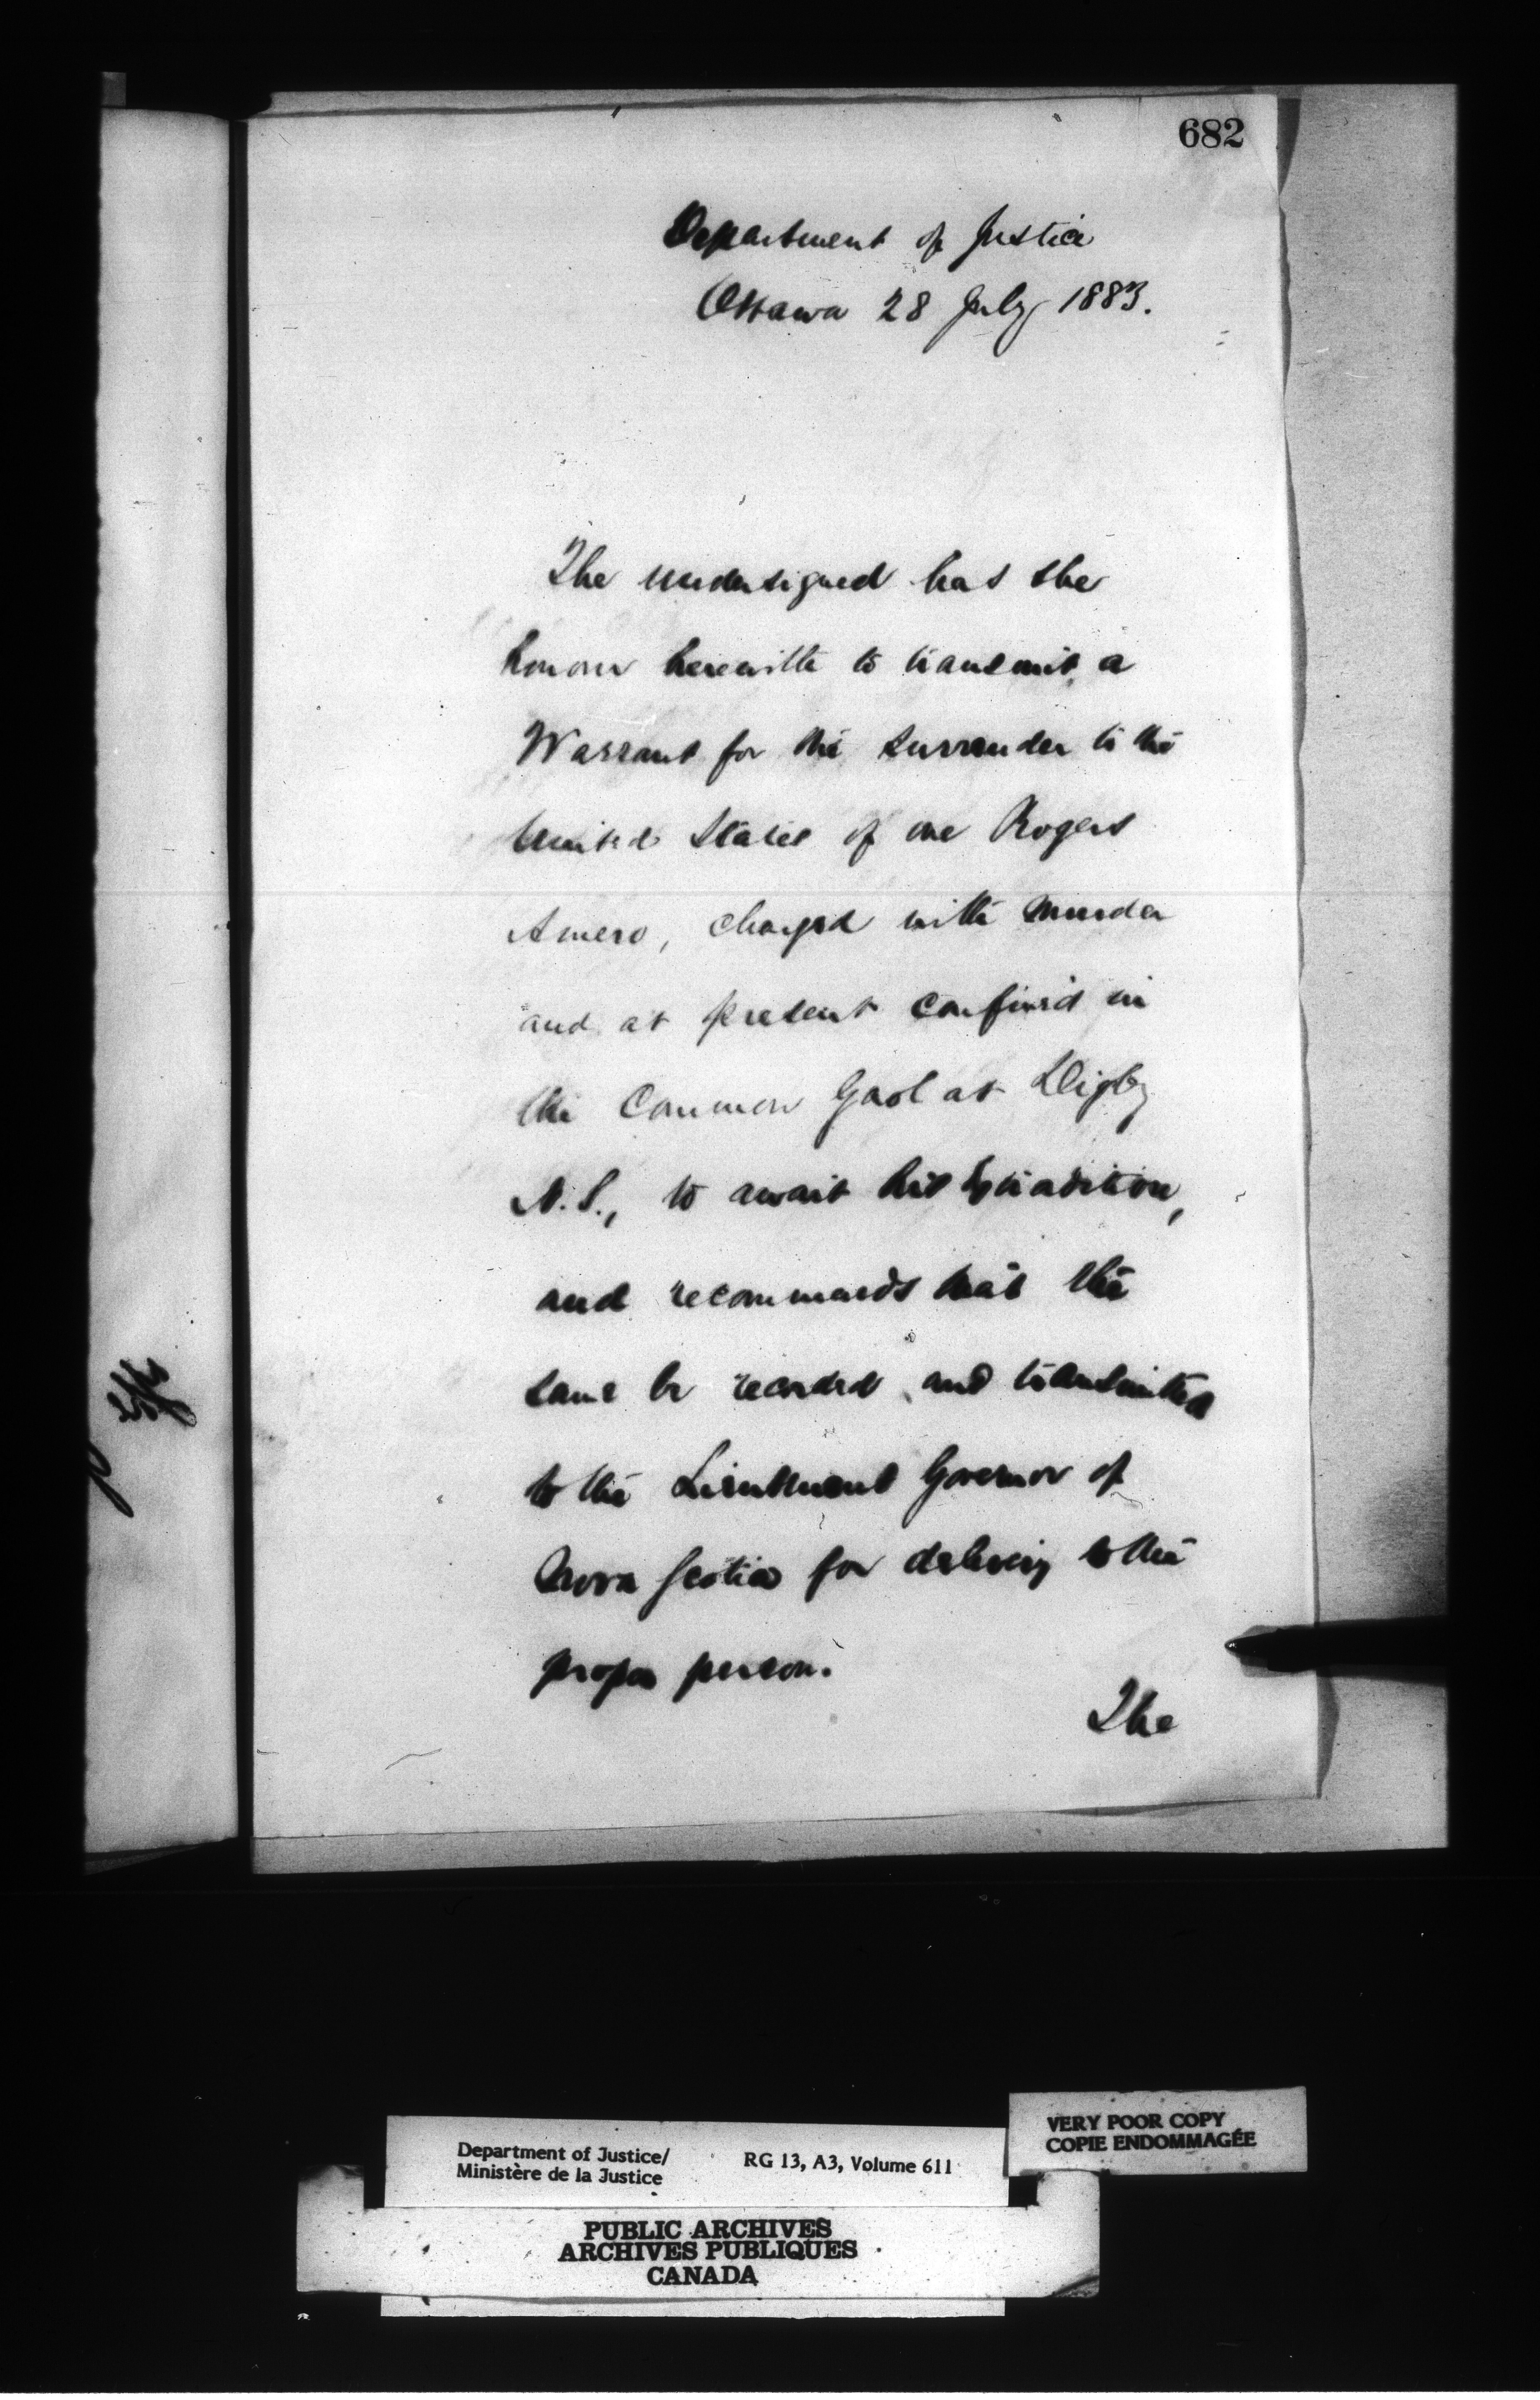 682
Department of Justice
Ottawa 28 July 1883.
The undersigned has the
honour herewith to transmit a
Warrant for the surrender to the
United States of one Rogers
Amero, charged with murder
and at present confined in
the Common Gaol at Digby
N.S., to await his Extradition,
and recommends that the
same be recorded and transmitted
to the Lieutenant Governor of
Nova Scotia for delivery to the
proper person.
The
VERY POOR COPY
COPIE ENDOMMAGÉE
Department of Justice/
Ministère de la Justice
RG 13, A3, Volume 611
PUBLIC ARCHIVES
ARCHIVES PUBLIQUES
CANADA